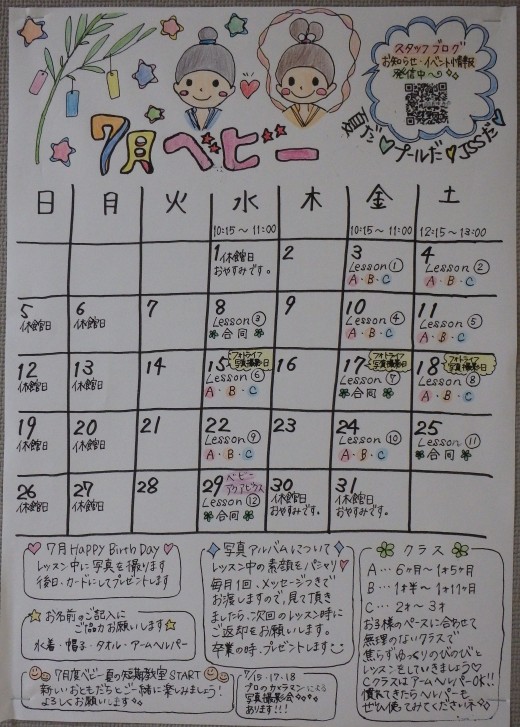 スタッフブログ
お知らせ・イベント情報
発信中〜
夏だ♡プールだ♡JSSだ♡
7月ベビー
日 月 火 水 木 金 土
10:15〜11:00 10:15〜11:00 12:15〜13:00
1 休館日 おやすみです。
2
3 Lesson① A・B・C
4 Lesson② A・B・C
5 休館日
6 休館日
7
8 Lesson③ 合同
9
10 Lesson④ A・B・C
11 Lesson⑤ A・B・C
12 休館日
13 休館日
14
15 フォトライフ 写真撮影日 Lesson⑥ A・B・C
16
17 フォトライフ 写真撮影日 Lesson⑦ 合同
18 フォトライフ 写真撮影日 Lesson⑧ A・B・C
19 休館日
20 休館日
21
22 Lesson⑨ A・B・C
23
24 Lesson⑩ A・B・C
25 Lesson⑪ 合同
26 休館日
27 休館日
28
29 ベビーアクアビクス Lesson⑫ 合同
30 休館日 おやすみです。
31 休館日 おやすみです。
♡7月HAPPY Birth Day♡
レッスン中に写真を撮ります
後日、カードにしてプレゼントします
☆お名前のご記入に
ご協力お願いします☆
水着・帽子・タオル・アームヘルパー
7月度ベビー夏の短期教室START
新しいおともだちとご一緒に楽しみましょう!
よろしくお願いします
写真アルバムについて
レッスン中の素顔をパシャリ♡
毎月1回、メッセージつきで
お渡ししますので、見て頂き
ましたら、次回のレッスン時に
ご返却をお願いします。
卒業の時、プレゼントします
7/15・17・18
プロのカメラマンによる
写真撮影会
あります!!!
クラス
A…6ヶ月〜1才5ヶ月
B…1才半〜1才11ヶ月
C…2才〜3才
お子様のペースに合わせて
無理のないクラスで
焦らずゆっくりのびのびと
レッスンをしていきましょう♡
CクラスはアームヘルパーOK!!
慣れてきたらヘルパーも
ぜひ使ってみてくださいネ